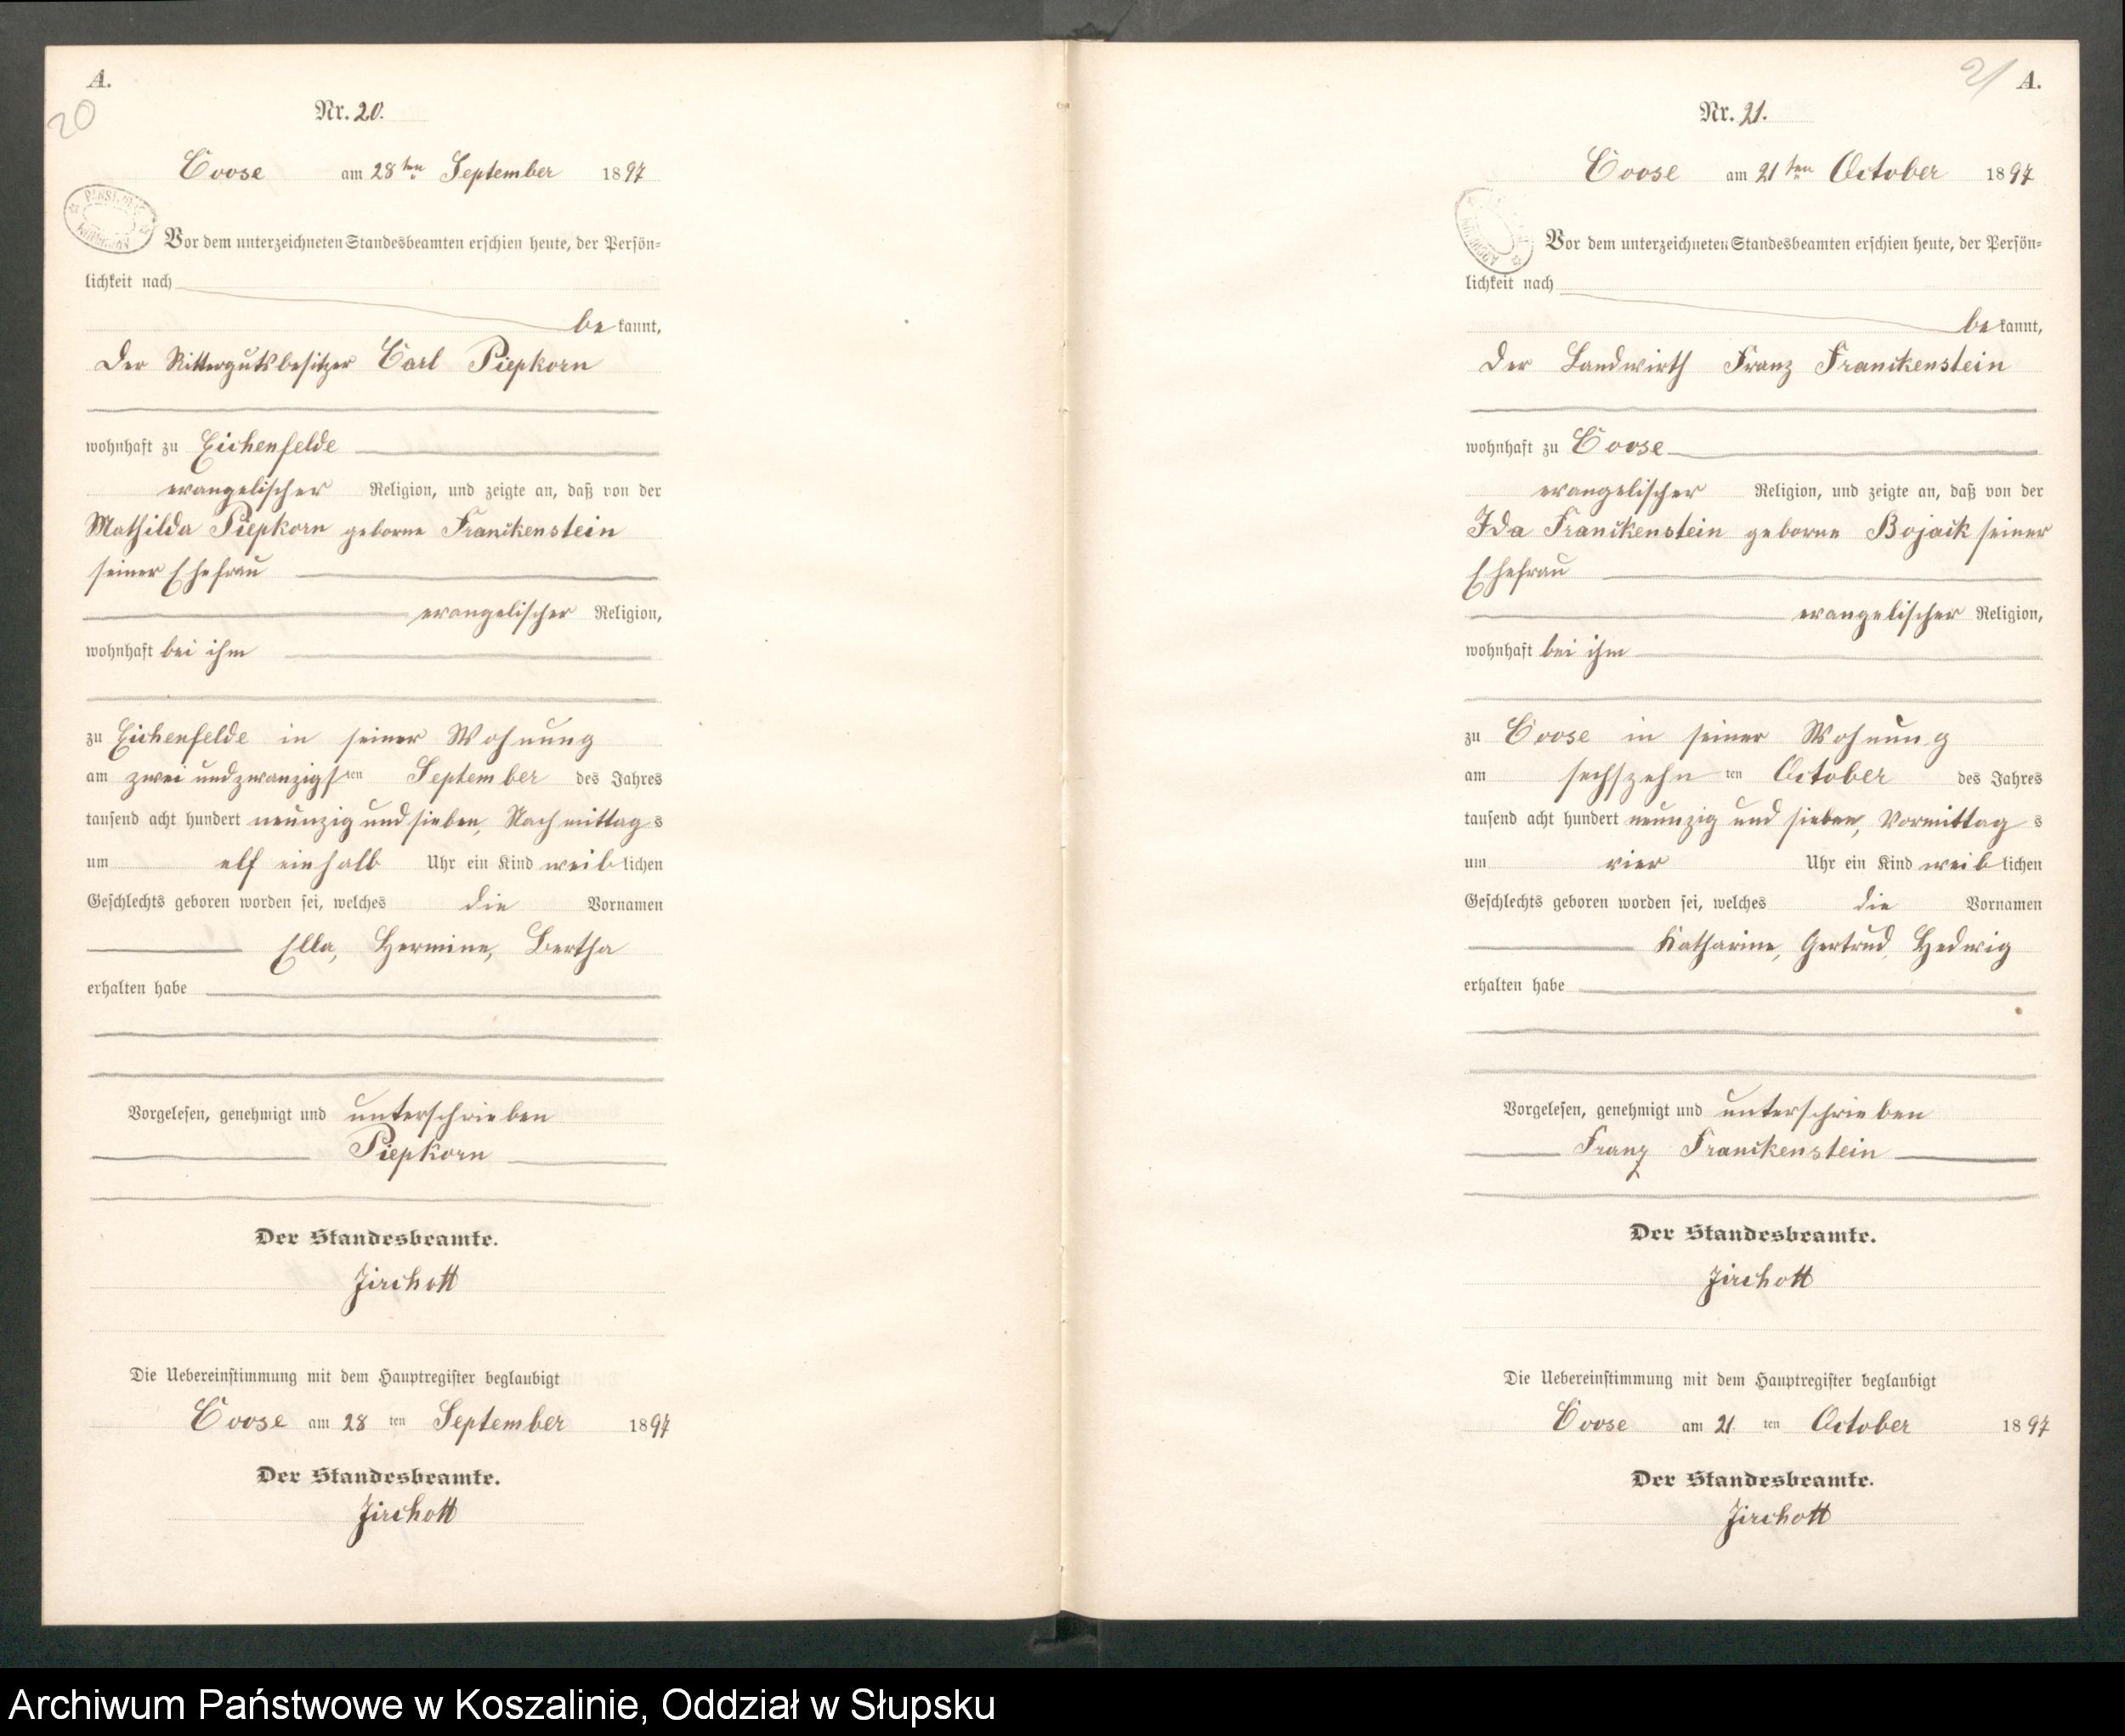 A.
20
Nr. 20.
Coose am 28ten September 1897
Vor dem unterzeichneten Standesbeamten erschien heute, der Persön=
lichkeit nach
be kannt,
Der Rittergutsbesitzer Carl Piepkorn
wohnhaft zu Eichenfelde
evangelischer Religion, und zeigte an, daß von der
Mathilda Piepkorn geborne Franckenstein
seiner Ehefrau
evangelischer Religion,
wohnhaft bei ihm
zu Eichenfelde in seiner Wohnung
am zwei und zwanzigsten September des Jahres
tausend acht hundert neunzig und sieben, Nachmittags
um elf einhalb Uhr ein Kind weiblichen
Geschlechts geboren worden sei, welches die Vornamen
Ella, Hermine, Bertha
erhalten habe
Vorgelesen, genehmigt und unterschrieben
Piepkorn
Der Standesbeamte.
Jirchott
Die Uebereinstimmung mit dem Hauptregister beglaubigt
Coose am 28 ten September 1897
Der Standesbeamte.
Jirchott
21 A.
Nr. 21.
Coose am 21ten October 1897
Vor dem unterzeichneten Standesbeamten erschien heute, der Persön=
lichkeit nach
be kannt,
Der Landwirth Franz Franckenstein
wohnhaft zu Coose
evangelischer Religion, und zeigte an, daß von der
Ida Franckenstein geborne Bojack seiner
Ehefrau
evangelischer Religion,
wohnhaft bei ihm
zu Coose in seiner Wohnung
am sechszehn ten October des Jahres
tausend acht hundert neunzig und sieben, Vormittags
um vier Uhr ein Kind weiblichen
Geschlechts geboren worden sei, welches die Vornamen
Katharine, Gertrud, Hedwig
erhalten habe
Vorgelesen, genehmigt und unterschrieben
Franz Franckenstein
Der Standesbeamte.
Jirchott
Die Uebereinstimmung mit dem Hauptregister beglaubigt
Coose am 21 ten October 1897
Der Standesbeamte.
Jirchott
Archiwum Państwowe w Koszalinie, Oddział w Słupsku